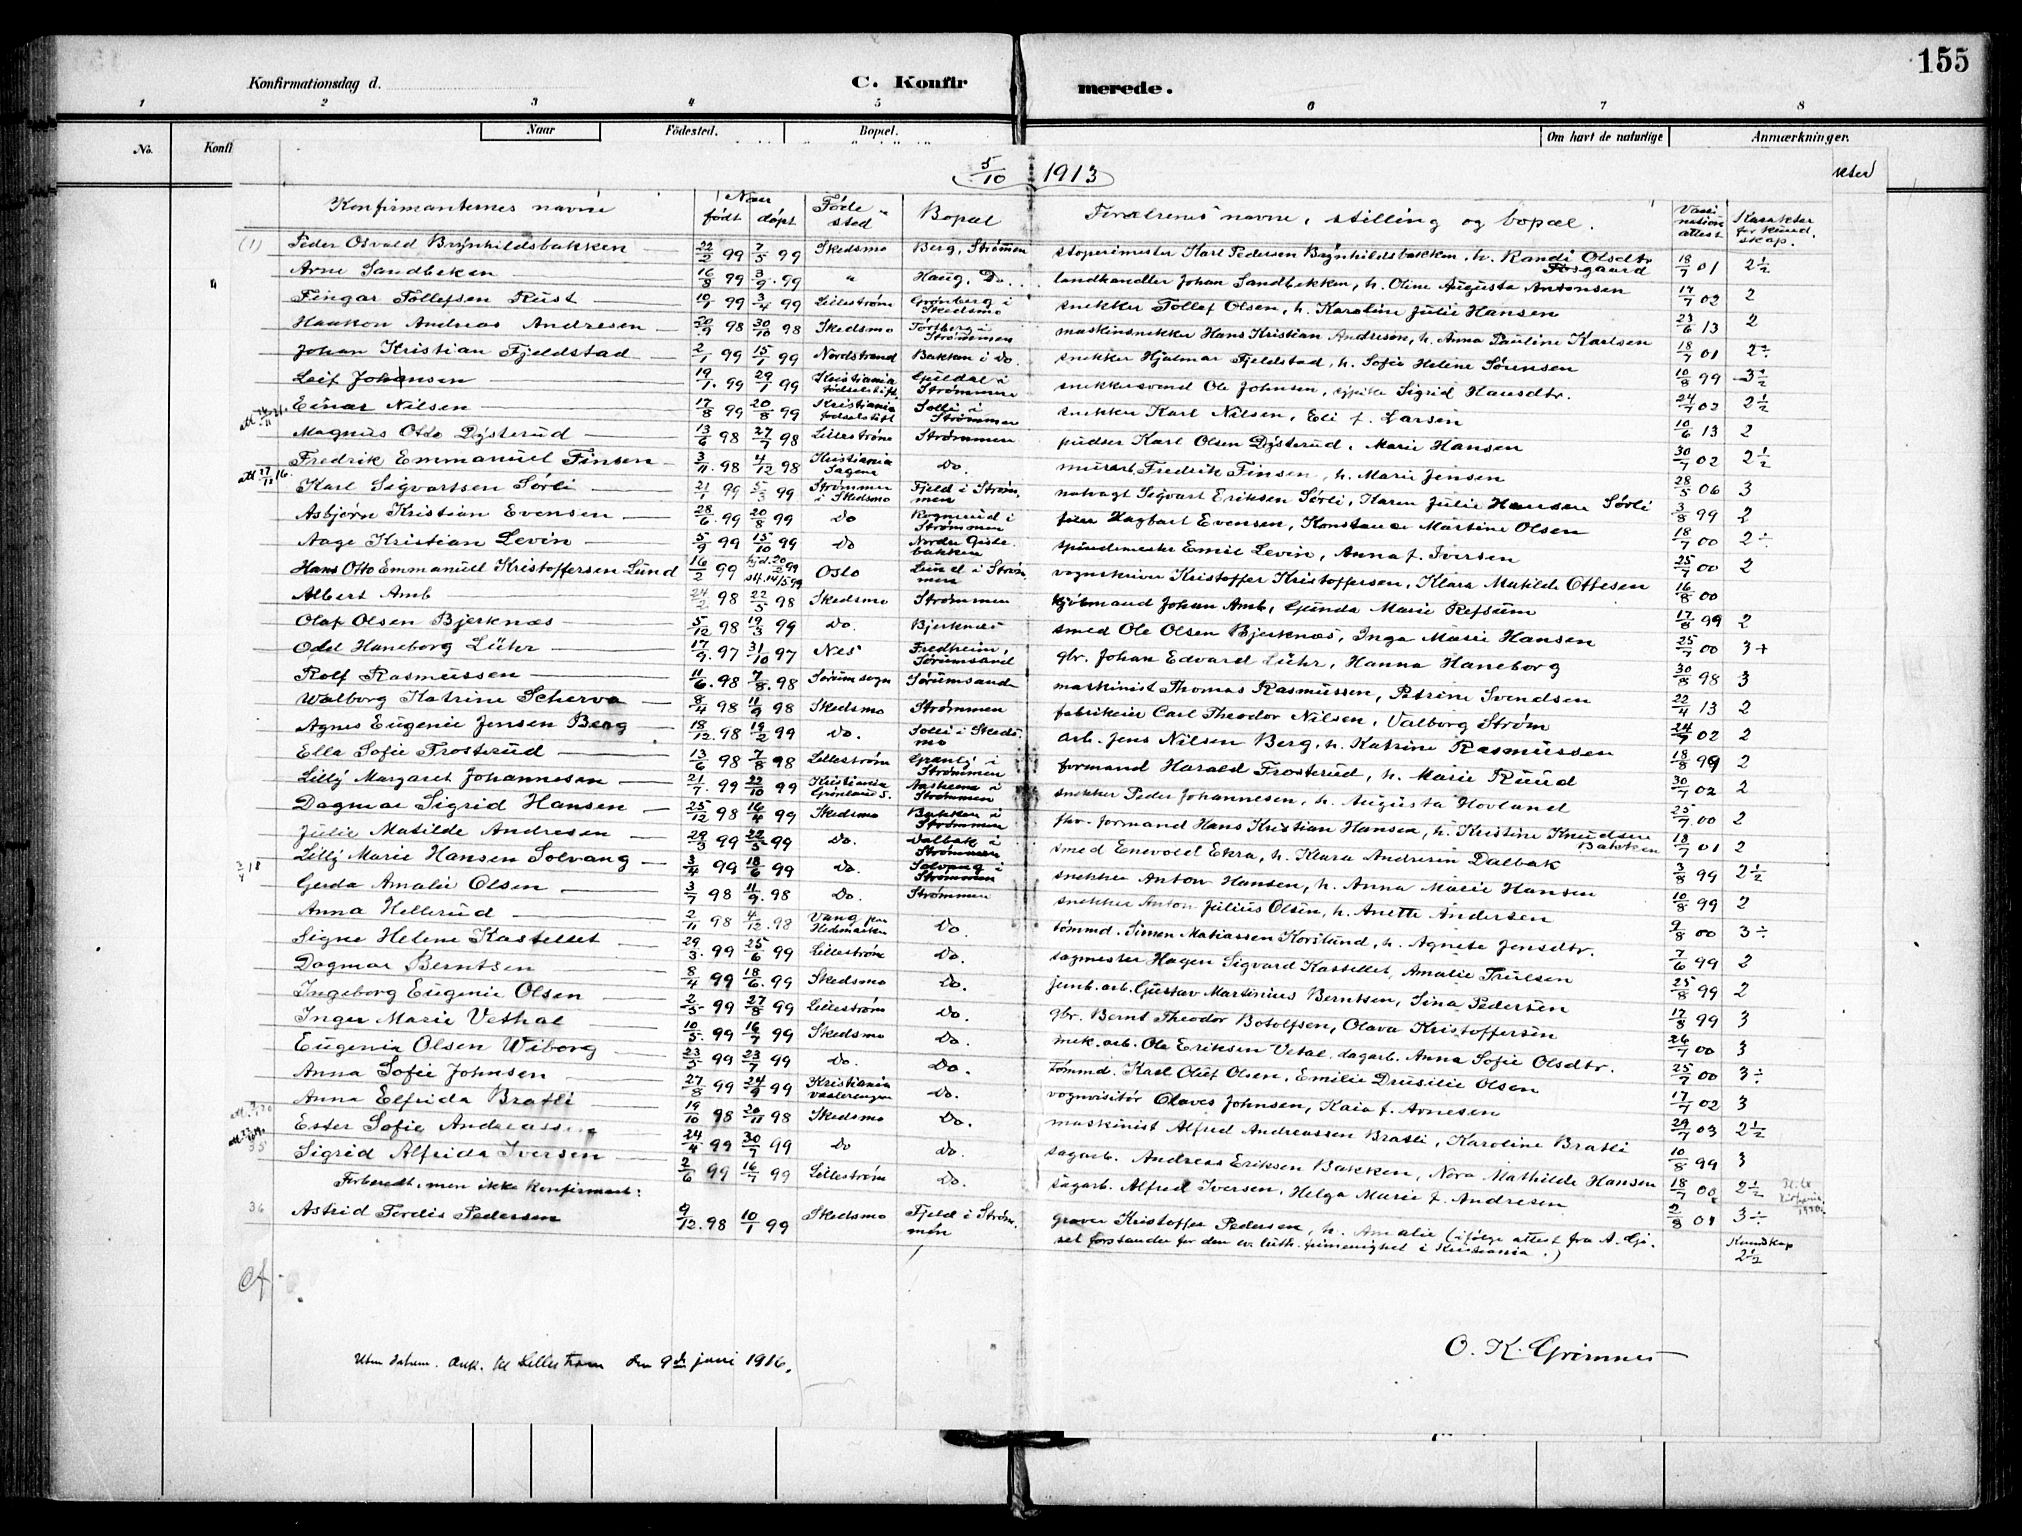 155
Konfirmationsdag d. C. Konfirmerede.
1 2 3 4 5 6 7 8
No. Konfi Naar Fødested. Bopæl. Om havt de naturlige Anmærkninger.
5/10 1913
Konfirmanternes navne Naar født døpt Fødested Bopæl Forældrenes navne, stilling og bopæl. Vaccinationsattest Karakter for kundskap.
(1) Peder Osvald Brynhildsbakken 22/2 99 7/5 99 Skedsmo Berg, Strømmen stoperimester Karl Pedersen Brynhildsbakken, h. Randi Olsdtr Fosgaard 18/7 01 2½
Arne Sandbekken 16/8 99 3/9 99 " Haug, Do. landhandler Johan Sandbekken, h. Oline Augusta Antonsen 17/7 02 2
Fingar Tollefsen Rust 10/1 99 3/4 99 Lillestrøm Grønberg i Skedsmo snekker Tollef Olsen, h. Karoline Julie Hansen 23/6 13 2
Haakon Andreas Andresen 20/9 98 30/10 98 Skedsmo Torsberg i Strømmen maskinsnekker Hans Kristian Andresen, h. Anna Pauline Karlsen 18/7 01 2÷
Johan Kristian Fjeldstad 2/1 99 15/1 99 Nordstrand Bakken i Do. snekker Hjalmar Fjeldstad, h. Sofie Helene Sørensen 10/8 99 3½
Leif Johansen 19/1 99 29/1 99 Kristiania fødselsstift. Guldal i Strømmen snekkersvend Ole Johnsen, Sigrid Hansdtr. 24/7 02 2½
Einar Nilsen 17/8 99 20/8 99 Kristiania fødselsstift Solli i Strømmen snekker Karl Nilsen, Edi f. Larsen 10/6 13 2
Magnus Otto Dysterud 13/6 98 27/7 98 Lillestrøm Strømmen pudser Karl Olsen Dysterud, Marie Hansen 30/7 02 2½
Fredrik Emmanuel Finsen 3/11 98 4/12 98 Kristiania Sagene Do. murarb. Fredrik Finsen, h. Marie Jensen 28/5 06 3
Karl Sigvartsen Sørli 21/1 99 5/3 99 Strømmen i Skedsmo Fjeld i Strømmen natvagt Sigvart Eriksen Sørli, Karen Julie Hansen Sørli 3/8 99 2
Asbjørn Kristian Evensen 28/6 99 20/8 99 Do Rognerud i Strømmen feier Hagbart Evensen, Konstance Martine Olsen 18/7 00 2÷
Aage Kristian Levin 5/9 99 15/10 99 Do Nordre Gistebakken spindemester Emil Levin, Anna f. Iversen 25/7 00 2
Hans Otto Emmanuell Kristoffersen Lund 16/2 99 hjd. 20/2 99 stf. 14/5 99 Oslo Lund i Strømmen vognskriver Kristoffer Kristoffersen, Klara Matilde Ottesen 16/8 00
Albert Amb 24/2 98 22/5 98 Skedsmo Strømmen kjøbmand Johan Amb, Gunda Marie Refsum 17/8 99 2
Olaf Olsen Bjerknæs 5/12 98 19/3 99 Do. Bjerknæs smed Ole Olsen Bjerknæs, Inga Marie Hansen 25/7 00 3+
Odd Haneborg Lühr 17/9 97 31/10 97 Nes Fredheim, Sørumsand gbr. Johan Edvard Lühr, Hanna Haneborg 30/8 98 3
Rolf Rasmussen 11/6 98 7/8 98 Sørum sogn Sørumsand maskinist Thomas Rasmussen, Petrine Svendsen 22/4 13 2
Walborg Katrine Scherva 8/4 98 11/9 98 Skedsmo Strømmen fabrikeier Carl Theodor Nilsen, Valborg Strøm 24/7 02 2
Agnes Eugenie Jensen Berg 18/12 98 19/2 99 Do. Solli i Skedsmo arb. Jens Nilsen Berg, h. Katrine Rasmussen 18/8 99 2
Ella Sofie Frosterud 13/6 98 7/8 98 Lillestrøm Granly i Strømmen formand Harald Frosterud, h. Marie Ruud 30/7 02 2
Lilly Margaret Johannesen 21/7 99 22/10 99 Kristiania Grønlands s. Aasheim i Strømmen snekker Peder Johannesen, h. Augusta Hovland 25/7 00 2
Dagmar Sigrid Hansen 25/12 98 16/4 99 Skedsmo Bakken i Strømmen fhv. formand Hans Kristian Hansen, h. Kristine Knudsen Bakken 18/7 01 2
Julie Matilde Andresen 29/3 99 22/5 99 Do. Dalbak i Strømmen smed Enevold Ekra, h. Klara Andresen Dalbak 3/8 99 2½
3/4 18 Lilly Marie Hansen Solvang 3/4 99 18/6 99 Do. Solvang i Strømmen snekker Anton Hansen, h. Anna Marie Hansen 10/8 99 2
Gerda Amalie Olsen 3/7 98 11/9 98 Do. Strømmen snekker Anton Julius Olsen, h. Anette Andersen 9/8 00 3÷
Anna Hellerud 2/11 98 4/12 98 Vang paa Hedemarken Do. tømmd. Simen Matiassen Korslund, h. Agnete Jensdtr. 7/6 99 2
Signe Helene Kastellet 29/3 99 25/6 99 Lillestrøm Do. sagmester Hagen Sigvard Kastellet, Amalie Trulsen 25/8 99 2
Dagmar Berntsen 8/4 99 18/6 99 Skedsmo Do. jernb.arb. Gustav Martinius Berntsen, Sina Pedersen 17/8 99 3
Ingeborg Eugenie Olsen 2/5 99 27/8 99 Lillestrøm Do. gbr. Bernt Theodor Botolfsen, Olava Kristoffersen 26/7 00 3
Inger Marie Vethal 10/5 99 16/7 99 Skedsmo Do. mek. arb. Ole Eriksen Vetal, dagarb. Anna Sofie Olsdtr. 25/7 00 3÷
Eugenia Olsen Wiborg 23/5 99 23/7 99 Do. Do. Tømmd. Karl Oluf Olsen, Emilie Drusilie Olsen 17/7 02 3
Anna Sofie Johnsen 27/8 99 24/9 99 Kristiania Vaalerengen Do. vognvisitør Olaves Johnsen, Kaia f. Arnesen 29/7 03 2½
Anna Elfrida Bratli 19/10 98 20/11 98 Skedsmo Do. maskinist Alfred Andreassen Bratli, Karoline Bratli 10/8 99 3
Ester Sofie Andreassen 24/4 99 30/7 99 Do Do. sagarb. Andreas Eriksen Bakken, Nora Mathilde Hansen 18/7 00 2½
35 Sigrid Alfrida Iversen 2/6 99 16/7 99 Lillestrøm Do. sagarb. Alfred Iversen, Helga Marie f. Andresen 2/8 01 3÷
Forberedt, men ikke konfirmert:
36 Astrid Tordis Pedersen 9/12 98 10/1 99 Skedsmo Fjeld i Strømmen graver Kristoffer Pedersen, h. Amalie (ifølge attest fra A. Gjesel forstander for den ev. luth. frimenighet i Kristiania.) Kundskap 2½
O. K. Grimnes
Uten datum. Ank. til Lillestrøm den 9de juni 1916.